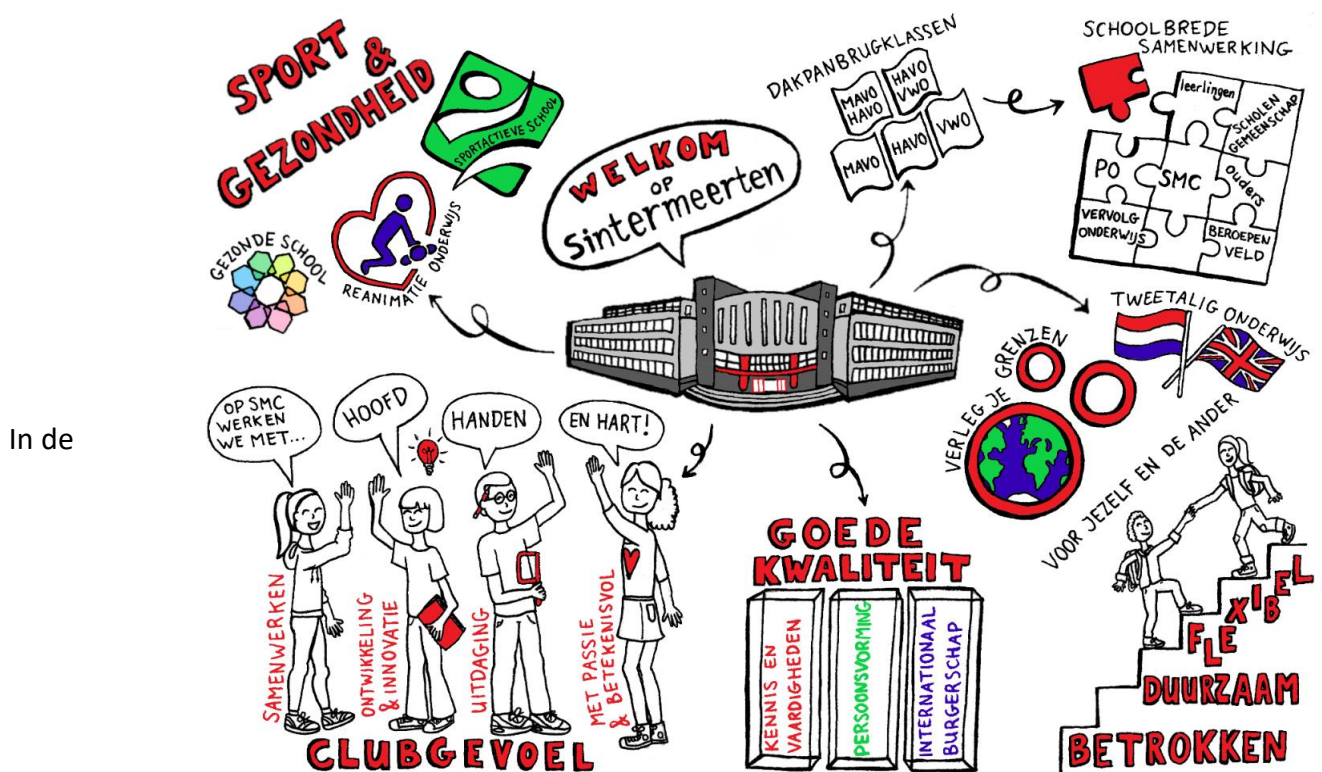 SPORT
&
GEZONDHEID
SPORTACTIEVE SCHOOL
GEZONDE SCHOOL
REANIMATIE ONDERWIJS
WELKOM
OP
Sintermeerten
DAKPANBRUGKLASSEN
MAVO
HAVO
HAVO
VWO
MAVO
HAVO
VWO
SCHOOLBREDE
SAMENWERKING
leerlingen
SCHOLEN
GEMEENSCHAP
PO
SMC
ouders
VERVOLG
ONDERWIJS
BEROEPEN
VELD
TWEETALIG ONDERWIJS
VERLEG JE GRENZEN
VOOR JEZELF EN DE ANDER
In de
OP SMC
WERKEN
WE MET...
HOOFD
HANDEN
EN HART!
SAMENWERKEN
ONTWIKKELING
& INNOVATIE
UITDAGING
MET PASSIE
& BETEKENISVOL
CLUBGEVOEL
GOEDE
KWALITEIT
KENNIS EN
VAARDIGHEDEN
PERSOONSVORMING
INTERNATIONAAL
BURGERSCHAP
FLEXIBEL
DUURZAAM
BETROKKEN